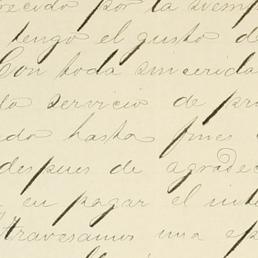 recido por la siemp
tengo el gusto d
Con toda sincerida
do servicio de pr
do hasta fines
despues de agradec
en pagar el int
travesamos una ep